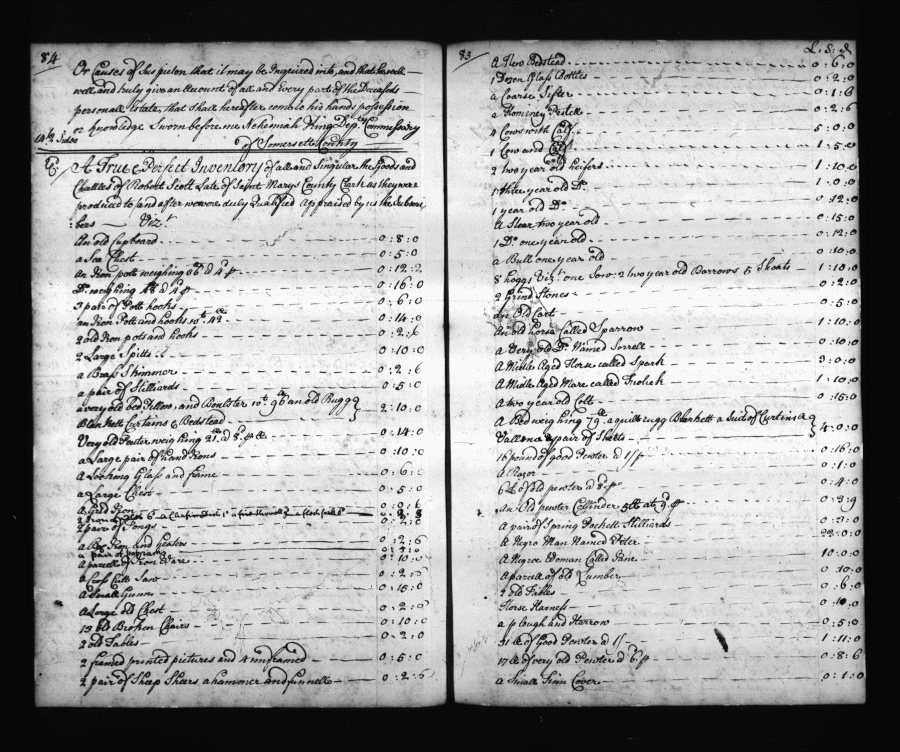 84
Or Causes of Suspicion that it may be Inquired into, and that he shall
well and truly give an Account of all and Every part of the Deceased's
personall Estate that shall hereafter come to his hands possession
or knowledge Sworn before me Nehemiah King Depty Commissary
of Somersett County
A True & Perfect Inventory of all and Singular the Goods and
Chattles of Robert Scott Late of Saint Marys County Clark as they were
produced to (and after we were duly Qualified) Appraised by us the Subscri
:bers Vizt
An old Cupboard 0:8:0
a Sea Chest 0:5:0
An Iron pott weighing 36 lb d 4d p 0:12:2
Do weighing 48 d 4d p 0:16:0
3 pair of Pott hooks 0:6:0
an Iron Pott and hooks wt 42 lb 0:14:0
2 old Iron pots and hooks 0:2:6
2 Large Spitts 0:10:0
a Brass Skimmer 0:2:6
a pair of Stilliards 0:5:0
a very old bed Pillow, and Boulster wt 96 an old Rugg
Blankett Curtains & Bedstead 2:10:0
Very old Pewter weighing 21 lb d 8d p lb 0:14:0
a Large pair of hand Irons 0:10:0
a Looking Glass and frame 0:6:0
a Large Chest 0:5:0
a Gridd Iron
2 pair of Tongs 0:2:0
a Box Iron and heaters 0:2:6
A parcell of Iron Ware 0:10:0
a Cross Cutt Saw 0:2:0
a Small Gunn 0:15:0
a Large old Chest 0:2:0
15 old Broken Chairs 0:10:0
2 old Tables 0:2:0
2 framed printed pictures and 4 unframed 0:5:0
2 pair of Sheep Sheers a hammer and funnell 0:2:6
85
L. S. d
A New Bedstead 0:6:0
1 Dozen Glass Bottles 0:2:0
a Coarse Sifter 0:1:6
a Hominey Pestell 0:2:6
4 Cows with Calf 5:0:0
1 Cow and Calf 1:5:0
2 two year old heifers 1:10:0
1 three year old Do 1:0:0
1 year old Do 0:12:0
A Stear two year old 0:15:0
1 Do one year old 0:12:0
a Bull one year old 0:10:0
8 hoggs Vizt one Sow 2 two year old Barrows 5 Shoats 1:10:0
2 Grind Stones 0:2:0
An Old Cart 0:5:0
An old horse Called Sparrow 1:10:0
a Very old Do Named Sorrell
A Midle Aged Horse called Spark 3:0:0
A Midle Aged Mare called Frolick 1:10:0
A two year old Colt 0:15:0
A Bed weighing 79 lb a quilt rugg Blankett a Suit of Curtins &
Vallens & pair of Sheets 4:0:0
16 pound of good Pewter d 1/ p 0:16:0
A Razor 0:1:0
6 lb of old pewter d 8d p 0:4:0
An Old pewter Cullinder 5lb at 9d p 0:3:9
A pair of Spring Pockett Stilliards 0:2:0
A Negro Man Named Peter 22:0:0
A Negroe Woman Called Jane 10:0:0
A parcell of old Lumber 0:10:0
2 old Tables 0:6:0
Horse Harness 0:10:0
a plough and Harrow 0:5:0
31 lb of Good Pewter d 1/ 1:11:0
17 lb of very old Pewter d 6d p 0:8:6
a Small Tinn Cover 0:1:0